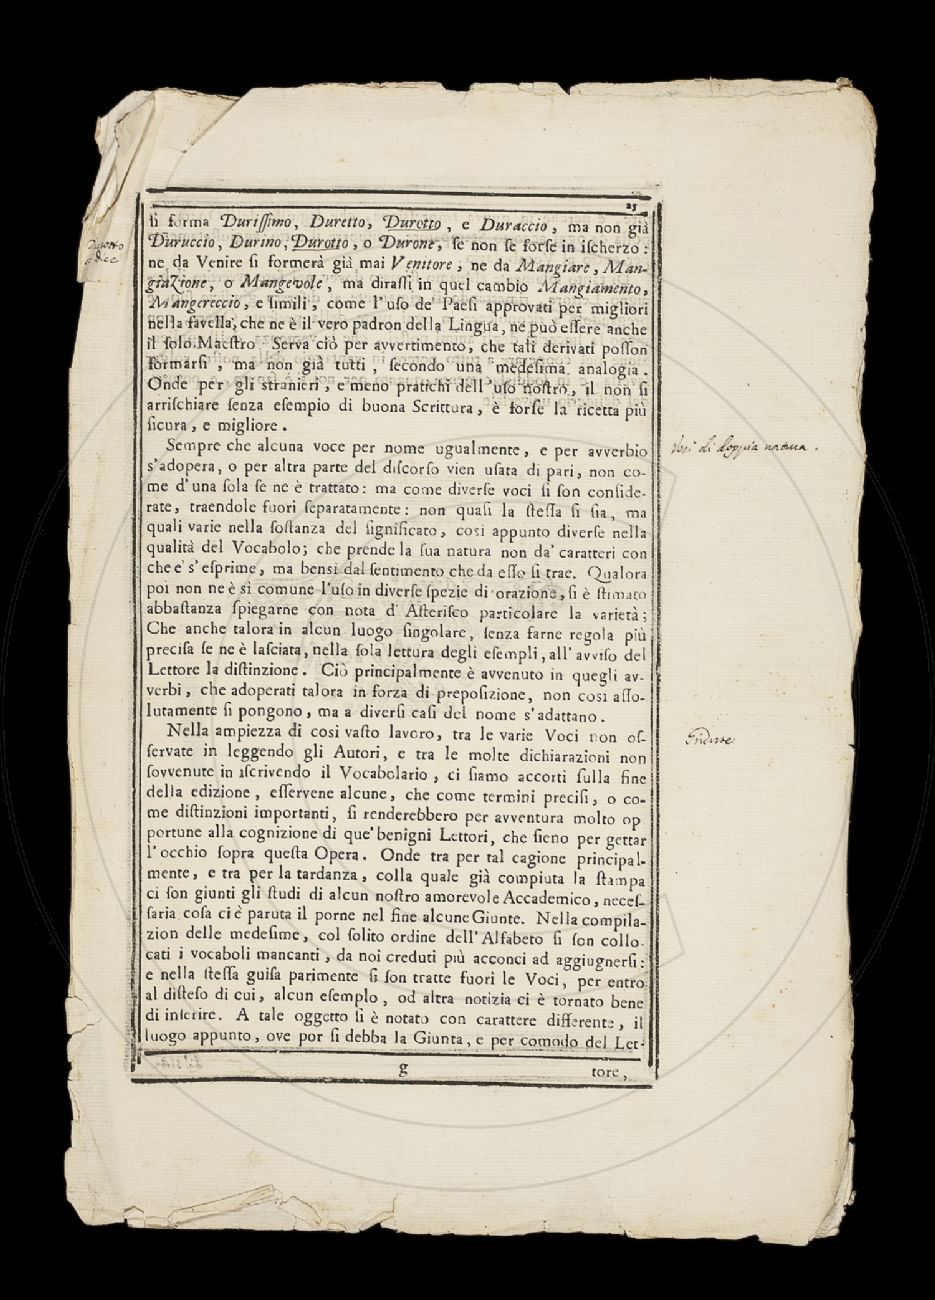 25
si forma Durissimo, Duretto, Durotto, e Duraccio, ma non già
Duruccio, Durino, Durotto, o Durone, se non se forse in ischerzo:
ne da Venire si formerà già mai Venitore, ne da Mangiare, Man-
giazione, o Mangevole, ma dirassi in quel cambio Mangiamento,
Mangereccio, e simili, come l'uso de' Paesi approvati per migliori
nella favella, che ne è il vero padron della Lingua, ne può essere anche
il solo Maestro. Serva ciò per avvertimento, che tali derivati posson
formarsi, ma non già tutti, secondo una medesima analogia.
Onde per gli stranieri, e meno pratichi dell'uso nostro, il non si
arrischiare senza esempio di buona Scrittura, è forse la ricetta più
sicura, e migliore.
Sempre che alcuna voce per nome ugualmente, e per avverbio
s'adopera, o per altra parte del discorso vien usata di pari, non co-
me d'una sola se ne è trattato: ma come diverse voci si son conside-
rate, traendole fuori separatamente: non quasi la stessa si sia, ma
quali varie nella sostanza del significato, così appunto diverse nella
qualità del Vocabolo; che prende la sua natura non da' caratteri con
che e' s'esprime, ma bensì dal sentimento che da esso si trae. Qualora
poi non ne è sì comune l'uso in diverse spezie di orazione, si è stimato
abbastanza spiegarne con nota d'Asterisco particolare la varietà;
Che anche talora in alcun luogo singolare, senza farne regola più
precisa se ne è lasciata, nella sola lettura degli esempli, all'avviso del
Lettore la distinzione. Ciò principalmente è avvenuto in quegli av-
verbi, che adoperati talora in forza di preposizione, non così asso-
lutamente si pongono, ma a diversi casi del nome s'adattano.
Nella ampiezza di così vasto lavoro, tra le varie Voci non os-
servate in leggendo gli Autori, e tra le molte dichiarazioni non
sovvenute in iscrivendo il Vocabolario, ci siamo accorti sulla fine
della edizione, esservene alcune, che come termini precisi, o co-
me distinzioni importanti, si renderebbero per avventura molto op
portune alla cognizione di que' benigni Lettori, che sieno per gettar
l'occhio sopra questa Opera. Onde tra per tal cagione principal-
mente, e tra per la tardanza, colla quale già compiuta la stampa
ci son giunti gli studi di alcun nostro amorevole Accademico, neces-
saria cosa ci è paruta il porne nel fine alcune Giunte. Nella compila-
zion delle medesime, col solito ordine dell'Alfabeto si son collo-
cati i vocaboli mancanti, da noi creduti più acconci ad aggiugnersi:
e nella stessa guisa parimente si son tratte fuori le Voci, per entro
al disteso di cui, alcun esemplo, od altra notizia ci è tornato bene
di inserire. A tale oggetto si è notato con carattere differente, il
luogo appunto, ove por si debba la Giunta, e per comodo del Let-
g
tore,
Durotto
si dice
Voci di doppia natura.